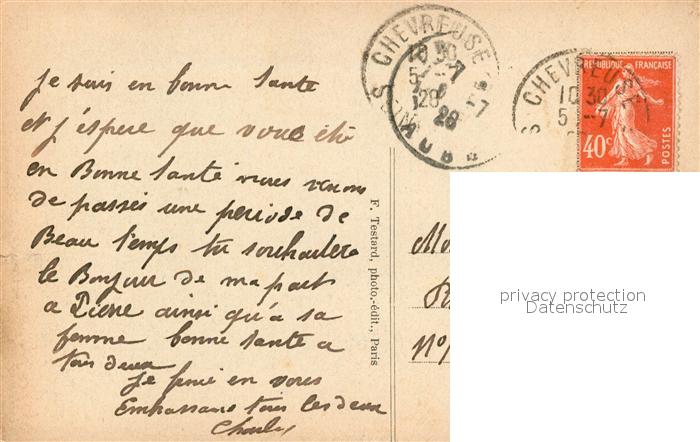 Je suis en bonne Sante
et j'éspere que vous ête
en Bonne Santé nous venons
de passés une periode de
Beau temps tu souhaitera
le Bonjour de ma part
a Pierre ainsi qu'à sa
femme bonne Santé a
tous deux
Je fini en vous
Embrassans tous les deux
Charles
F. Testard, photo.-édit., Paris
S. CHEVREUSE
10 30
5 -7
28
S. CHEVREU
10 30
5 -7
REPUBLIQUE FRANÇAISE
40c
POSTES
No
privacy protection
Datenschutz